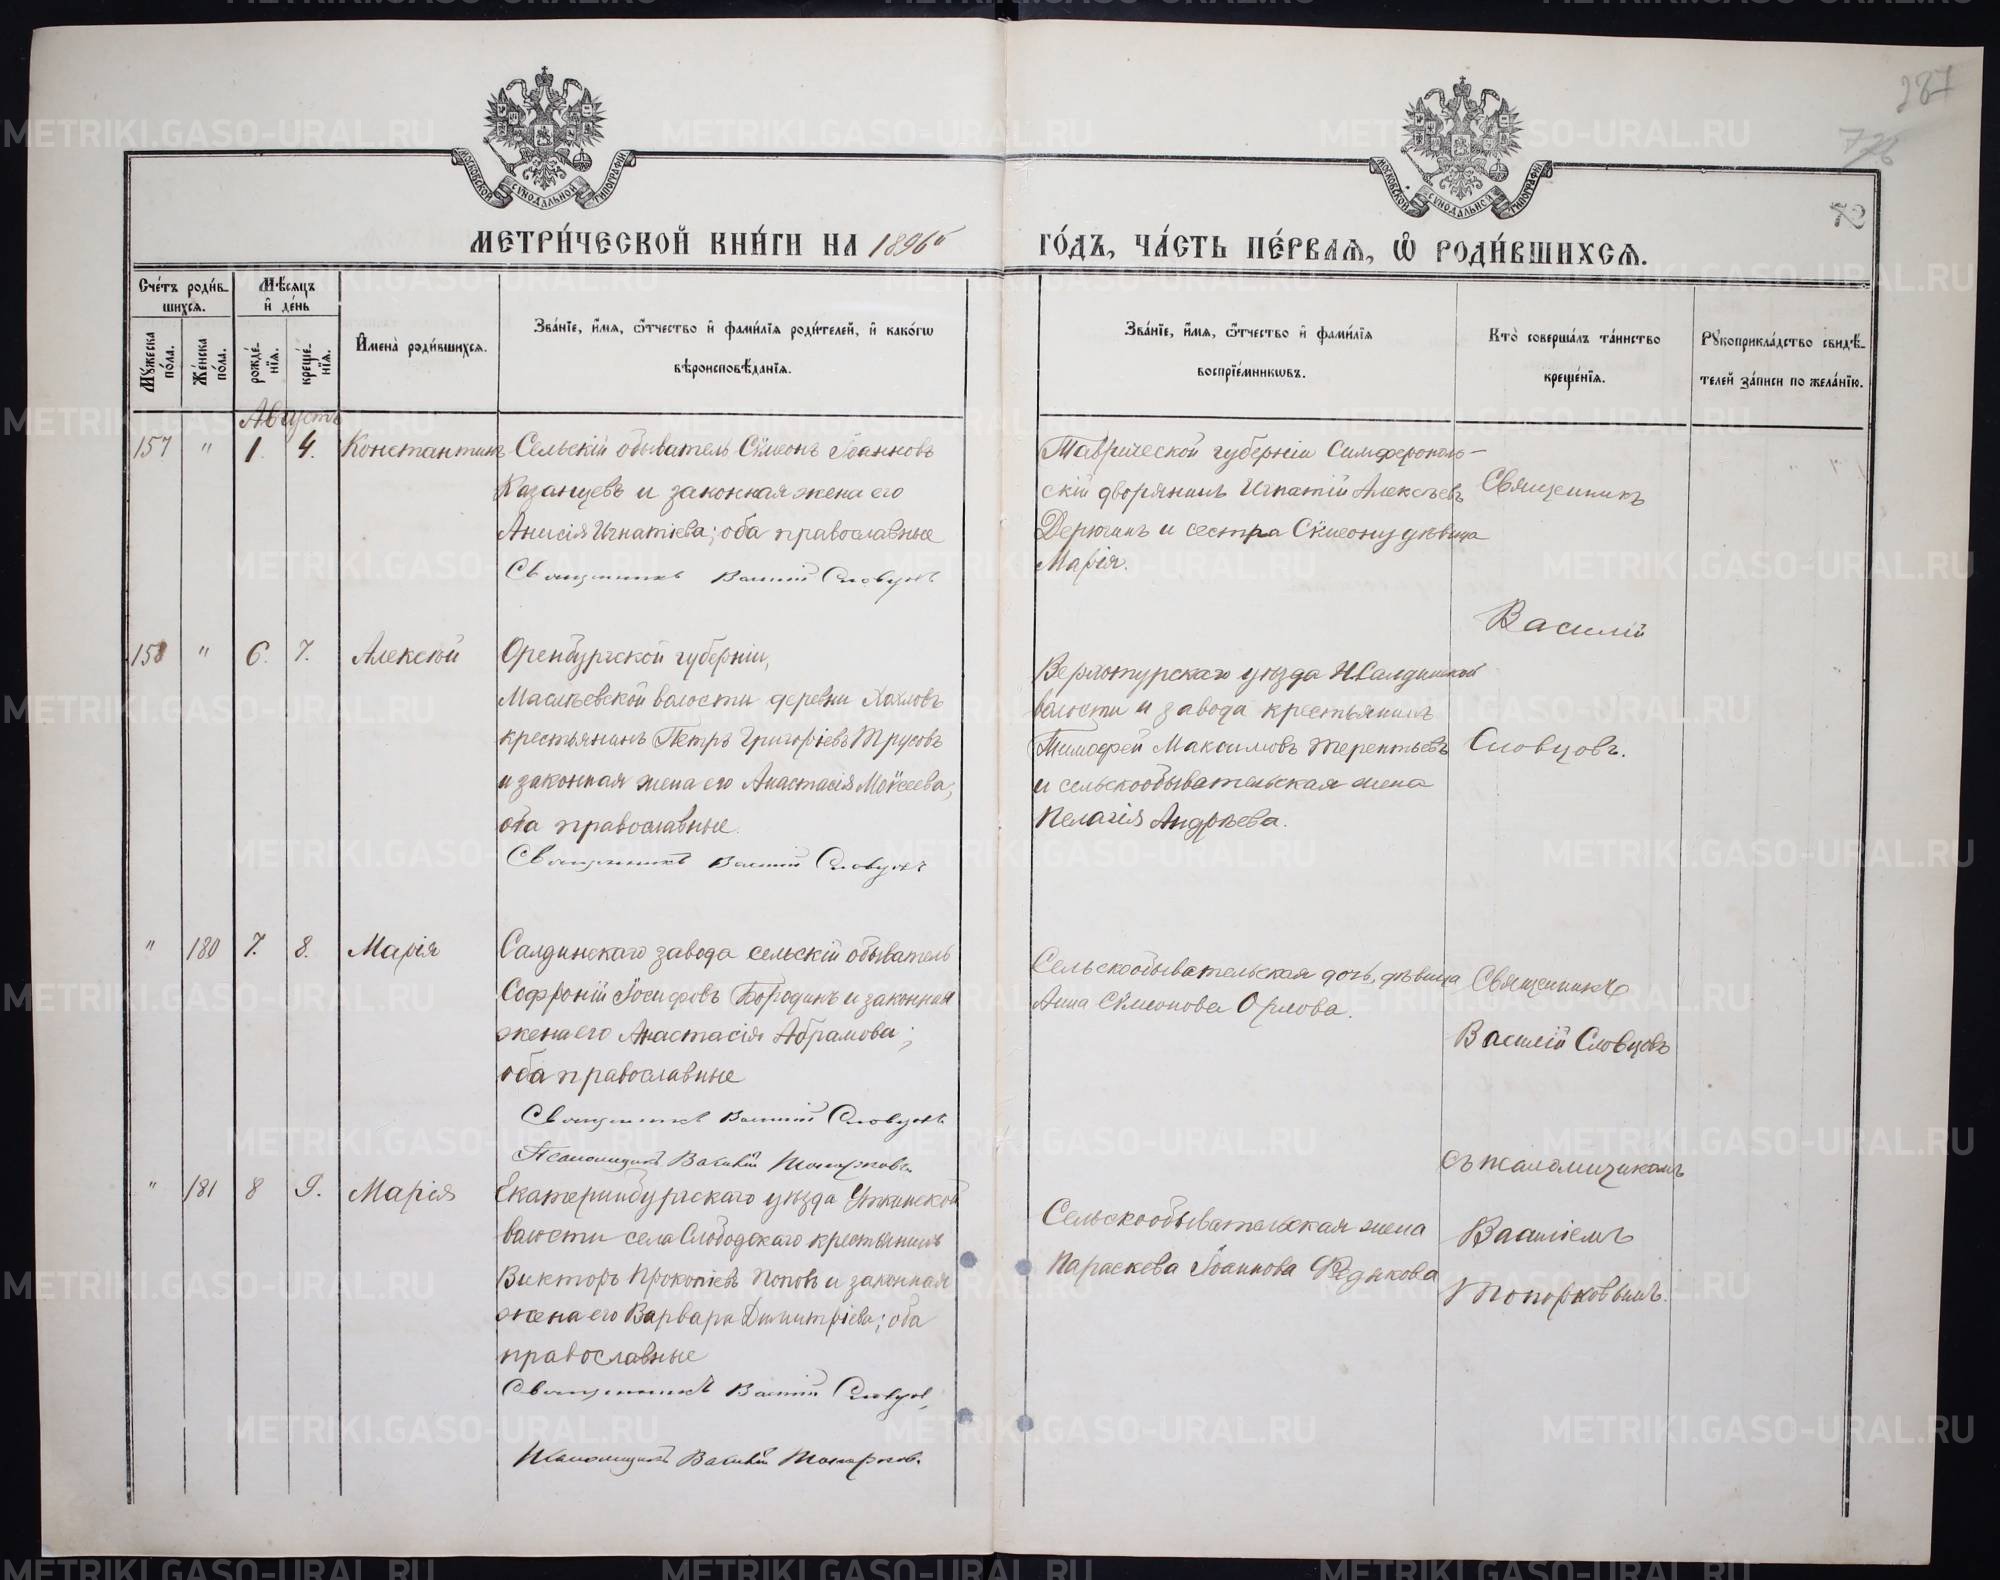 287
776
72
МОСКОВСКОЙ СѴНОДАЛЬНОЙ ТИПОГРАФІИ
МОСКОВСКОЙ СѴНОДАЛЬНОЙ ТИПОГРАФІИ
МЕТРИ́ЧЕСКОЙ КНИ́ГИ НА 1896й
ГО́ДЪ, ЧА́СТЬ ПЕ́РВАѦ, Ѡ҆ РОДИ́ВШИХСѦ.
Сче́тъ роди́вшихсѧ.
Мѣ́сѧцъ и҆ де́нь
Мꙋ́жеска по́ла.
Же́нска по́ла.
рожде́нїѧ.
креще́нїѧ.
И҆мена̀ роди́вшихсѧ.
Зва́нїе, и҆́мѧ, ѻ҆́тчество и҆ фами́лїѧ роди́телей, и҆ како́гѡ
вѣроисповѣ́данїѧ.
Зва́нїе, и҆́мѧ, ѻ҆́тчество и҆ фами́лїѧ
воспрїе́мникѡвъ.
Кто̀ соверша́лъ та́инство
креще́нїѧ.
Рꙋкоприкла́дство свидѣ́-
телей за́писи по жела́нїю.
Августъ
157 " 1. 4. Константинъ
Сельскій обыватель Сѵмеонъ Іоанновъ
Казанцевъ и законная жена его
Анисія Игнатіева; оба православные
Священникъ Василій Словцовъ
Таврической губерніи Симферополь-
скій дворянинъ Игнатій Алексѣевъ
Дерюгинъ и сестра Сѵмеону дѣвица
Марія.
Священникъ
Василій
Словцовъ.
158 " 6. 7. Алексѣй
Оренбургской губерніи,
волости деревни Хохловъ
крестьянинъ Петръ Григорьевъ Трусовъ
и законная жена его Анастасія Моѵсеева,
оба православные.
Священникъ Василій Словцовъ
Верхотурскаго уѣзда Н.Салдинской
волости и завода крестьянинъ
Тимофей Максимовъ Терентьевъ
и сельскообывательская жена
Пелагія Андреева.
" 180 7. 8. Марія
Салдинскаго завода сельскій обыватель
Софроній Іосифовъ Бородинъ и законная
жена его Анастасія Абрамова;
оба православные
Священникъ Василій Словцовъ
Псаломщикъ Василій Топорковъ.
Сельскообывательская дочь, дѣвица
Анна Сѵмеонова Орлова.
Священникъ
Василій Словцовъ
съ псаломщикомъ
Василіемъ
Топорковымъ.
" 181 8 9. Марія
Екатеринбургскаго уѣзда Уткинской
волости села Слободскаго крестьянинъ
Викторъ Прокопіевъ Поповъ и законная
жена его Варвара Димитріева; оба
православные
Священникъ Василій Словцовъ,
Псаломщикъ Василій Топорковъ.
Сельскообывательская жена
Параскева Іоаннова Федькова
METRIKI.GASO-URAL.RU